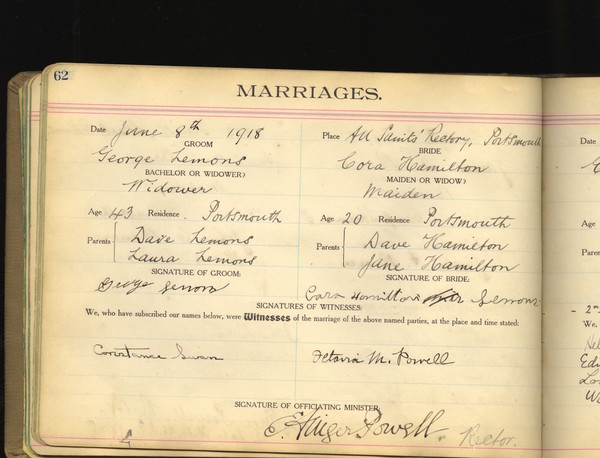 62
MARRIAGES.
Date June 8th 1918 Place All Saints' Rectory, Portsmouth
GROOM BRIDE
George Lemons Cora Hamilton
BACHELOR OR WIDOWER? MAIDEN OR WIDOW?
Widower Maiden
Age 43 Residence Portsmouth Age 20 Residence Portsmouth
Parents Dave Lemons Parents Dave Hamilton
Laura Lemons Jane Hamilton
SIGNATURE OF GROOM: SIGNATURE OF BRIDE:
George Cora Hamilton
SIGNATURES OF WITNESSES:
We, who have subscribed our names below, were Witnesses of the marriage of the above named parties, at the place and time stated:
Constance Swan M. Powell
SIGNATURE OF OFFICIATING MINISTER
Powell. Rector.
Date
Age
Paren
We,